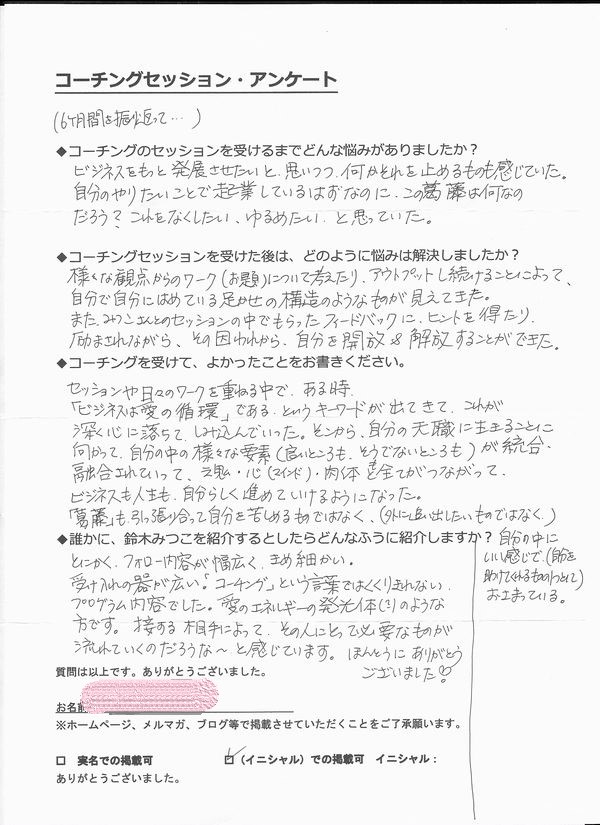 コーチングセッション・アンケート
(6ヶ月間を振り返って…)
◆コーチングのセッションを受けるまでどんな悩みがありましたか？
ビジネスをもっと発展させたいと、思いつつ、何かそれを止めるものも感じていた。
自分のやりたいことで起業しているはずなのに、この葛藤は何なの
だろう？これをなくしたい、ゆるめたい、と思っていた。
◆コーチングセッションを受けた後は、どのように悩みは解決しましたか？
様々な観点からのワーク(お題)について考えたり、アウトプットし続けることによって、
自分で自分にはめている足かせの構造のようなものが見えてきた。
また、みつこさんとのセッションの中でもらったフィードバックに、ヒントを得たり、
励まされながら、その囚われから、自分を開放&解放することができた。
◆コーチングを受けて、よかったことをお書きください。
セッションや日々のワークを重ねる中で、ある時、
「ビジネスは愛の循環」である、というキーワードが出てきて、これが
深く心に落ちて、しみ込んでいった。そこから、自分の天職に生きることに
向かって、自分の中の様々な要素(良いところも、そうでないところも)が統合、
融合されていって、魂・心(マインド)・肉体全てがつながって、
ビジネスも人生も、自分らしく進めていけるようになった。
「葛藤」も、引っ張り合って自分を苦しめるものではなく、(外に追い出したいものではなく、)
自分の中に
いい感じで、(自分を
助けてくれるものとして)
おさまっている。
◆誰かに、鈴木みつこを紹介するとしたらどんなふうに紹介しますか？
とにかく、フォロー内容が幅広く、きめ細かい。
受け入れの器が広い！「コーチング」という言葉ではくくりきれない、
プログラム内容でした。愛のエネルギーの発光体(!?)のような
方です。接する相手によって、その人にとって必要なものが
流れていくのだろうな〜と感じています。ほんとうにありがとう
ございました♡
質問は以上です。ありがとうございました。
お名前
※ホームページ、メルマガ、ブログ等で掲載させていただくことをご了承願います。
□ 実名での掲載可 ☑（イニシャル）での掲載可 イニシャル：
ありがとうございました。